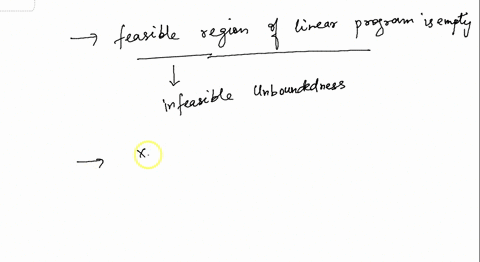 → feasible region of linear program is empty
↓
infeasible Unboundedness
→ x.